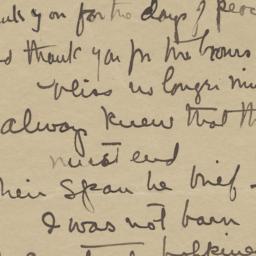 you for the days of peac
thank you for the hours
bliss no longer min
always knew that th
must end
heir span be brief -
I was not born
happiness